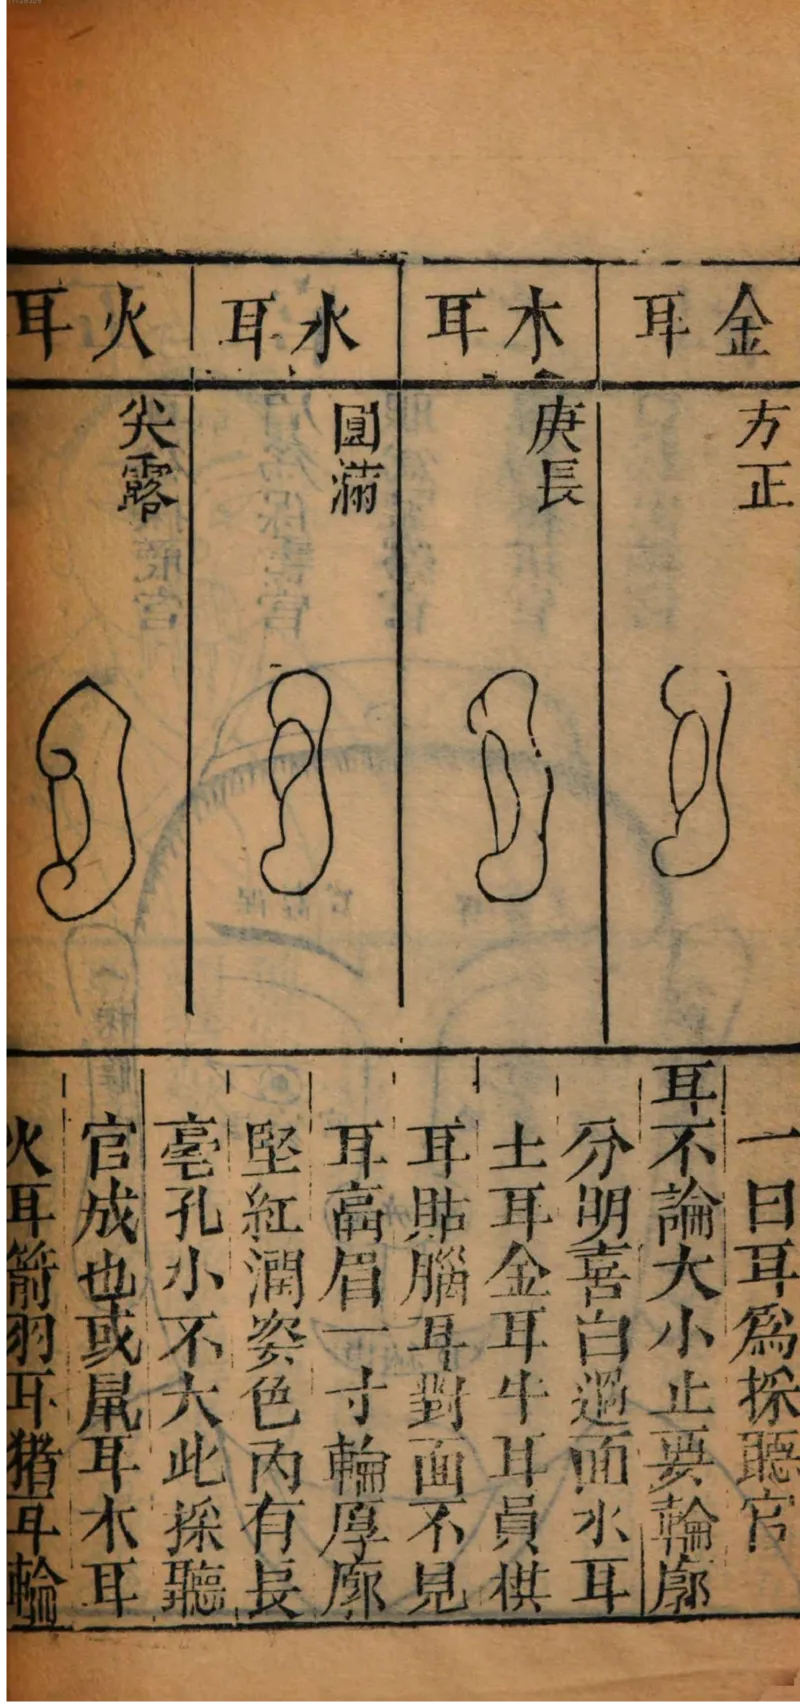 金耳
方正
木耳
庚長
水耳
圓滿
火耳
尖露
一曰耳爲採聽官
耳不論大小止要輪廓
分明喜白過面水耳
土耳金耳牛耳員棋
耳貼腦耳對面不見
耳高眉一寸輪厚廓
堅紅潤姿色內有長
毫孔小不大此採聽
官成也或鼠耳木耳
火耳箭羽耳猪耳輪